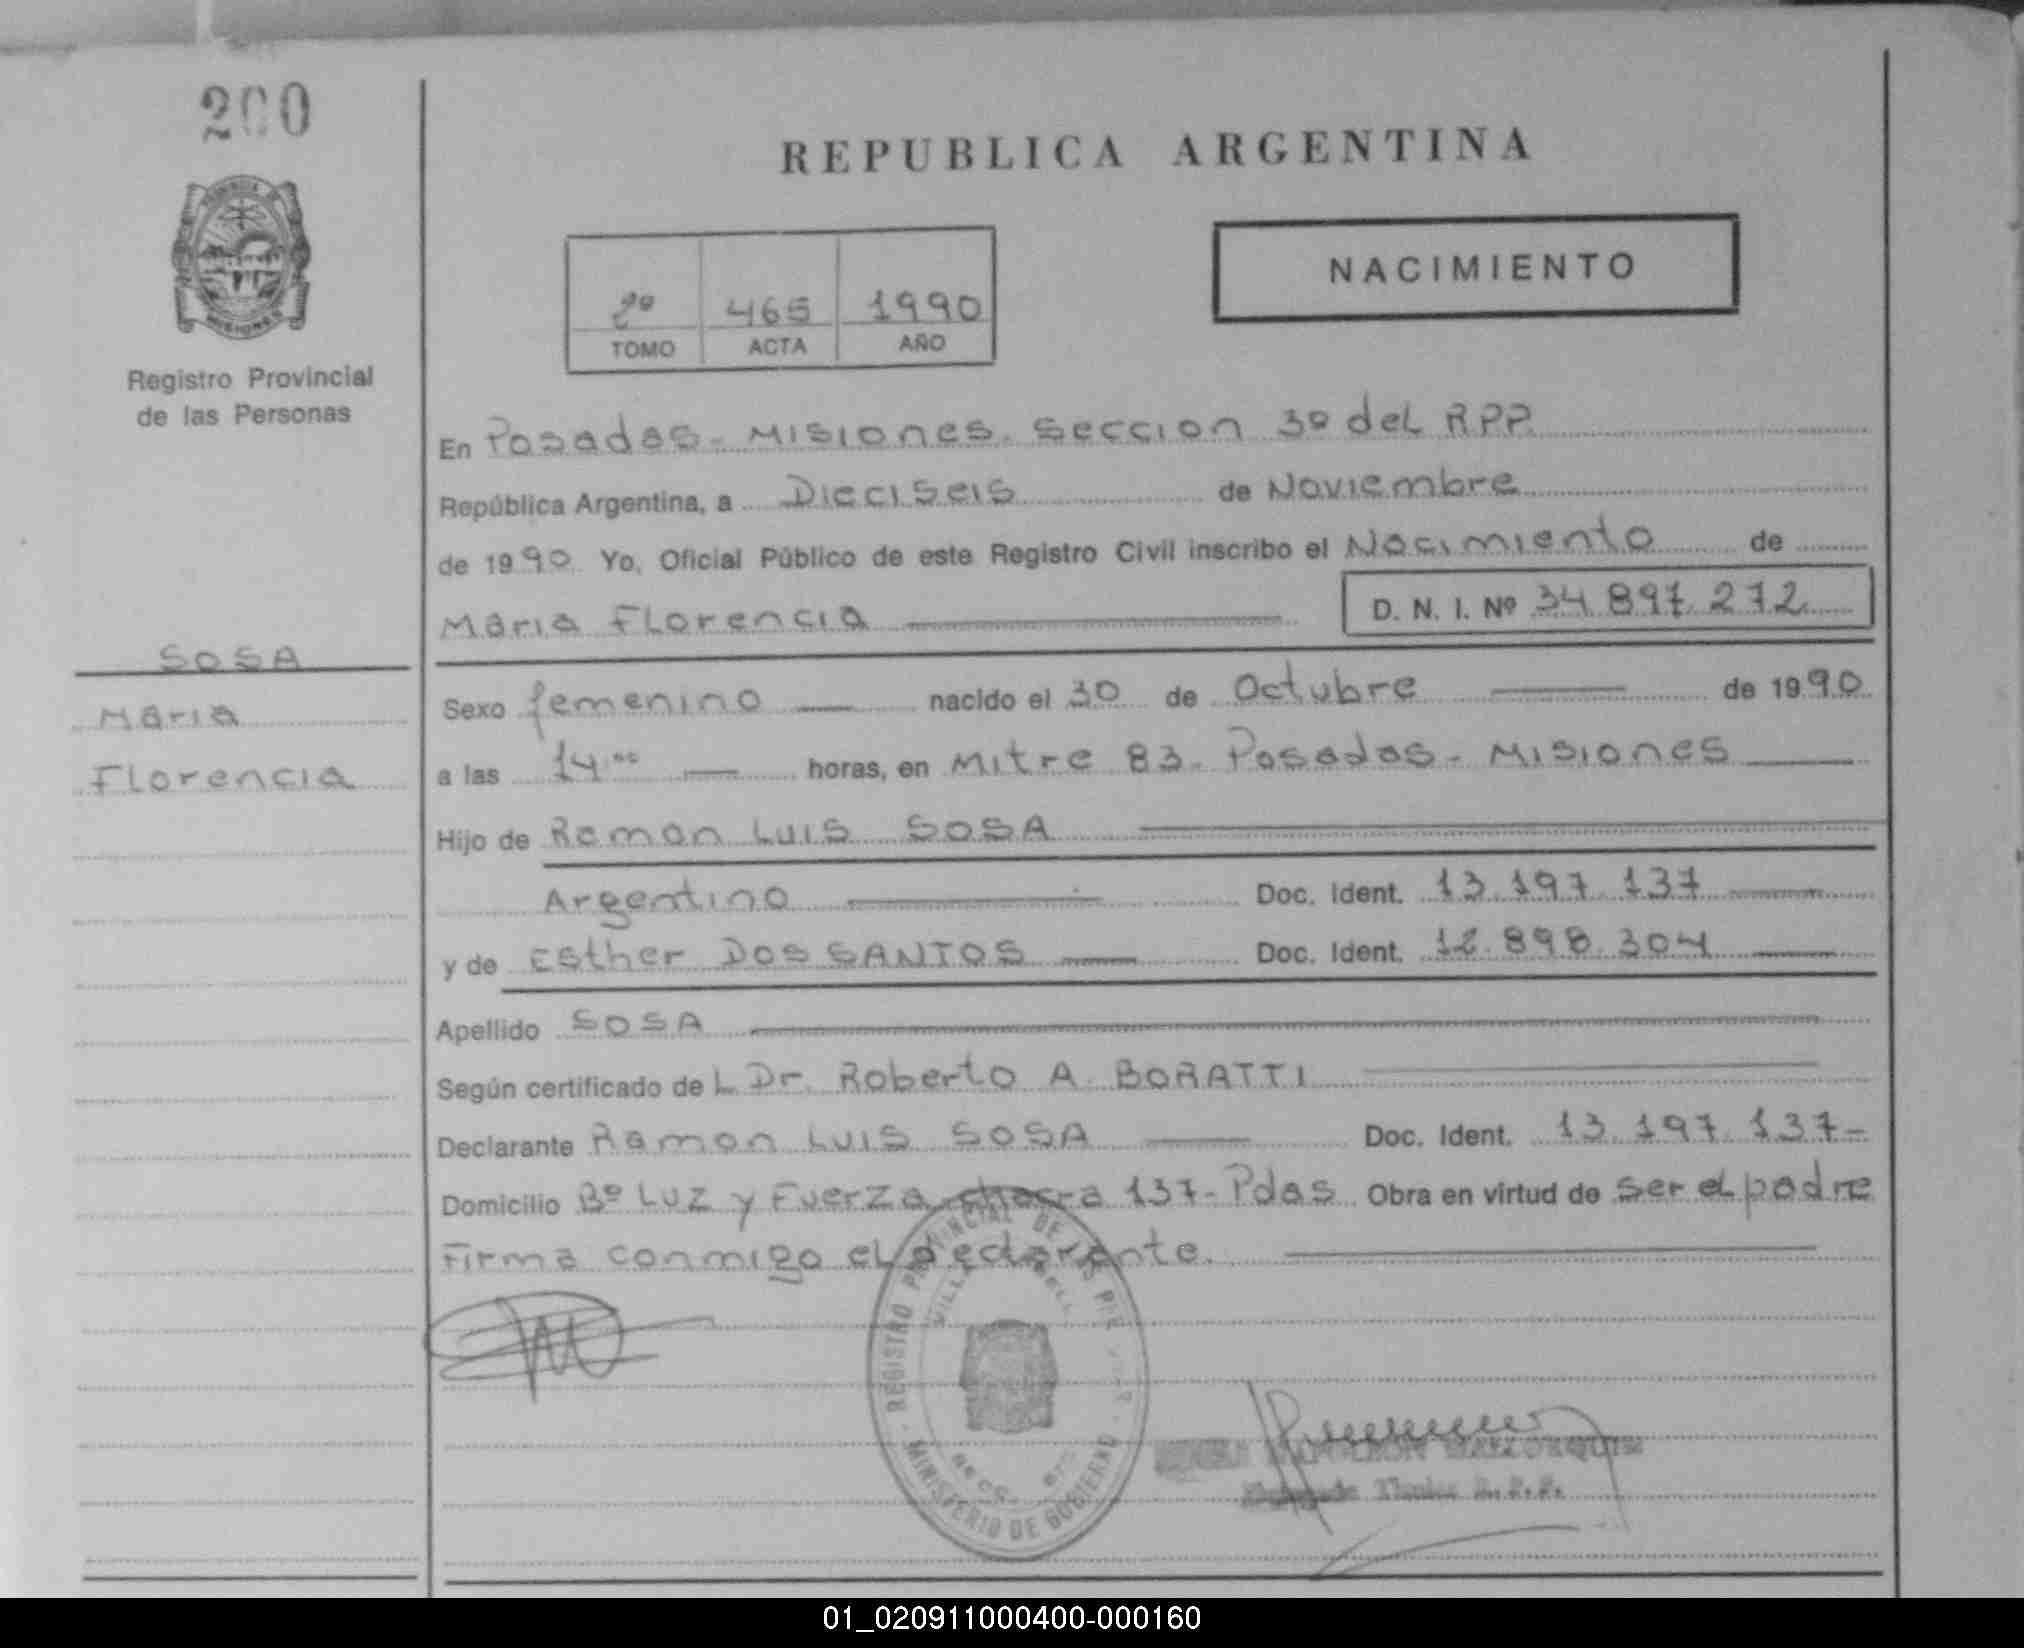 200
REPUBLICA ARGENTINA
NACIMIENTO
2º 465 1990
TOMO ACTA AÑO
MISIONES
Registro Provincial
de las Personas
En Posadas - Misiones. Seccion 3º del RPP.
República Argentina, a Dieciseis de Noviembre
de 1990 Yo, Oficial Público de este Registro Civil inscribo el Nacimiento de
Maria Florencia D. N. I. Nº 34.897.272
SOSA
Maria
Florencia
Sexo femenino nacido el 30 de Octubre de 1990
a las 14 horas, en Mitre 83. Posadas - Misiones
Hijo de Ramon Luis SOSA
Argentino Doc. Ident. 13.197.137
y de Esther DOS SANTOS Doc. Ident. 12.898.304
Apellido SOSA
Según certificado de L Dr. Roberto A. BORATTI
Declarante Ramon Luis SOSA Doc. Ident. 13.197.137-
Domicilio Bº Luz y Fuerza chacra 137- Pdas Obra en virtud de ser el padre
Firma conmigo el declarante.
REGISTRO PROVINCIAL DE LAS
MINISTERIO DE GOBIERNO
01_020911000400-000160